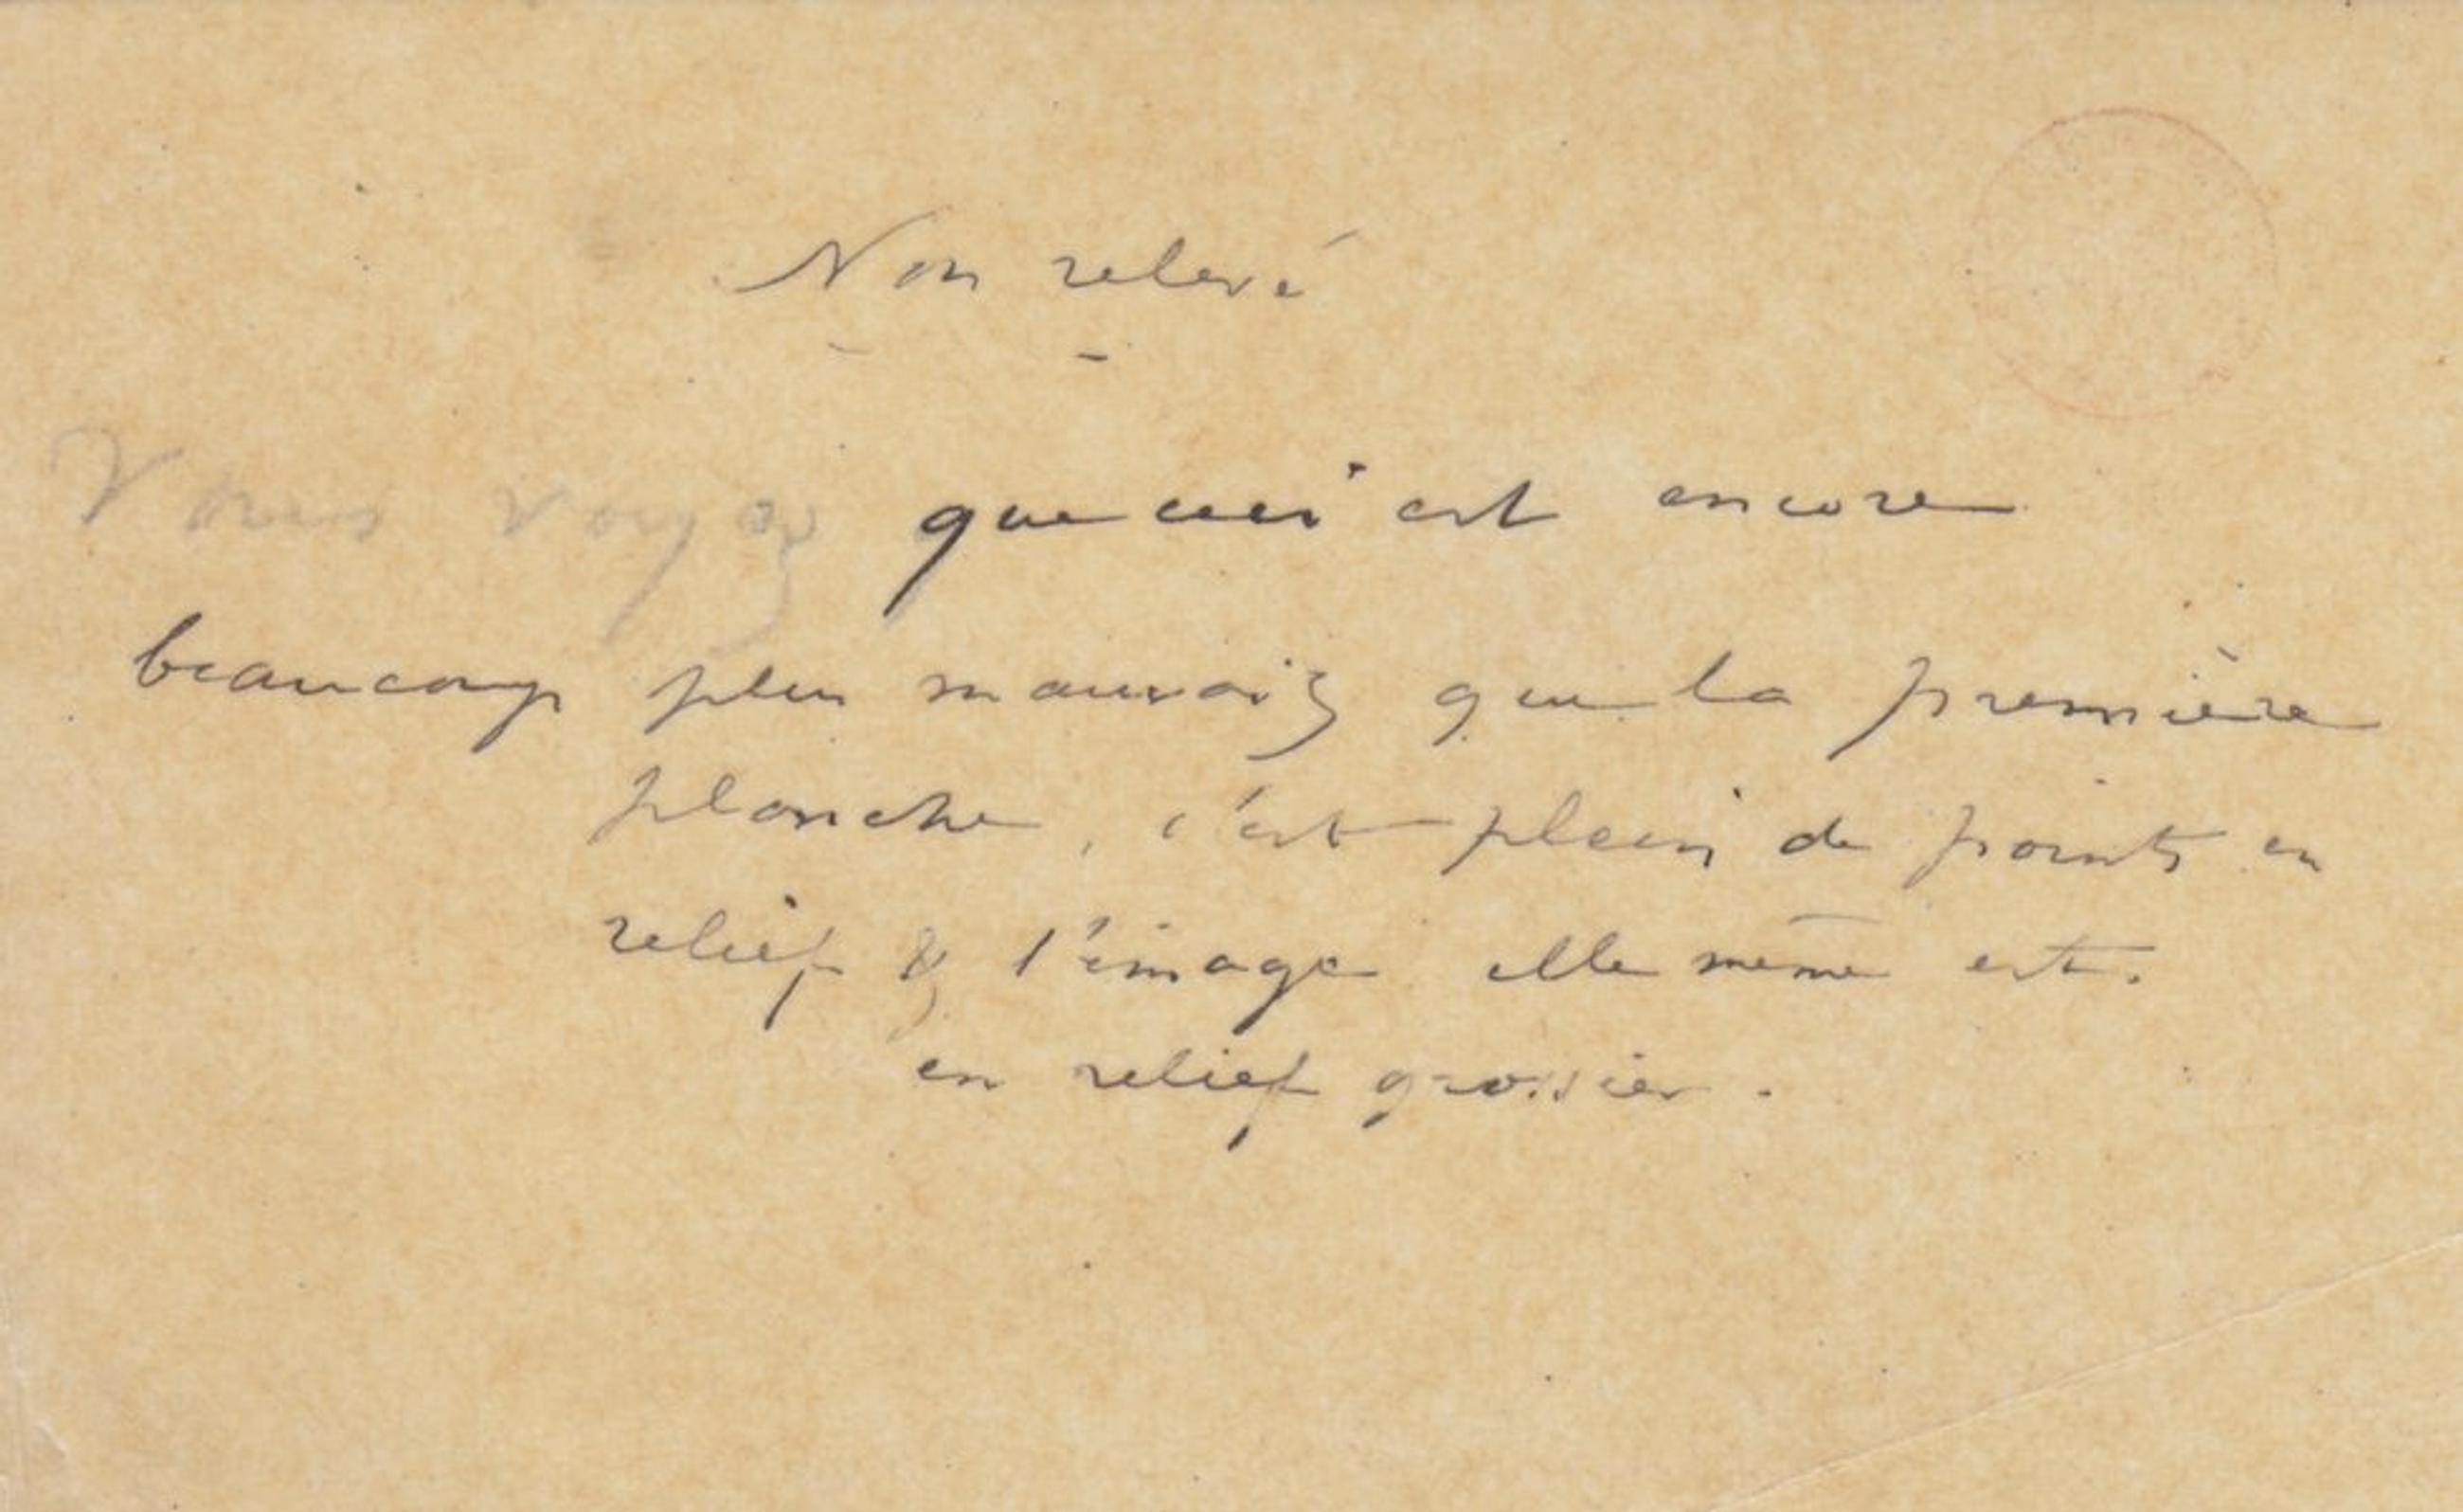 Non relevé
Vous voyez que ceci est encore
beaucoup plus mauvais que la première
planche, c'est plein de points en
relief & l'image elle même est.
en relief grossier.